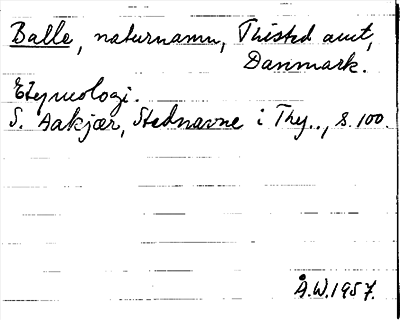 Balle, naturnamn, Thisted amt,
Danmark.
Etymologi.
S. Aakjær, Stednavne i Thy.., s. 100.
Å.W. 1957.